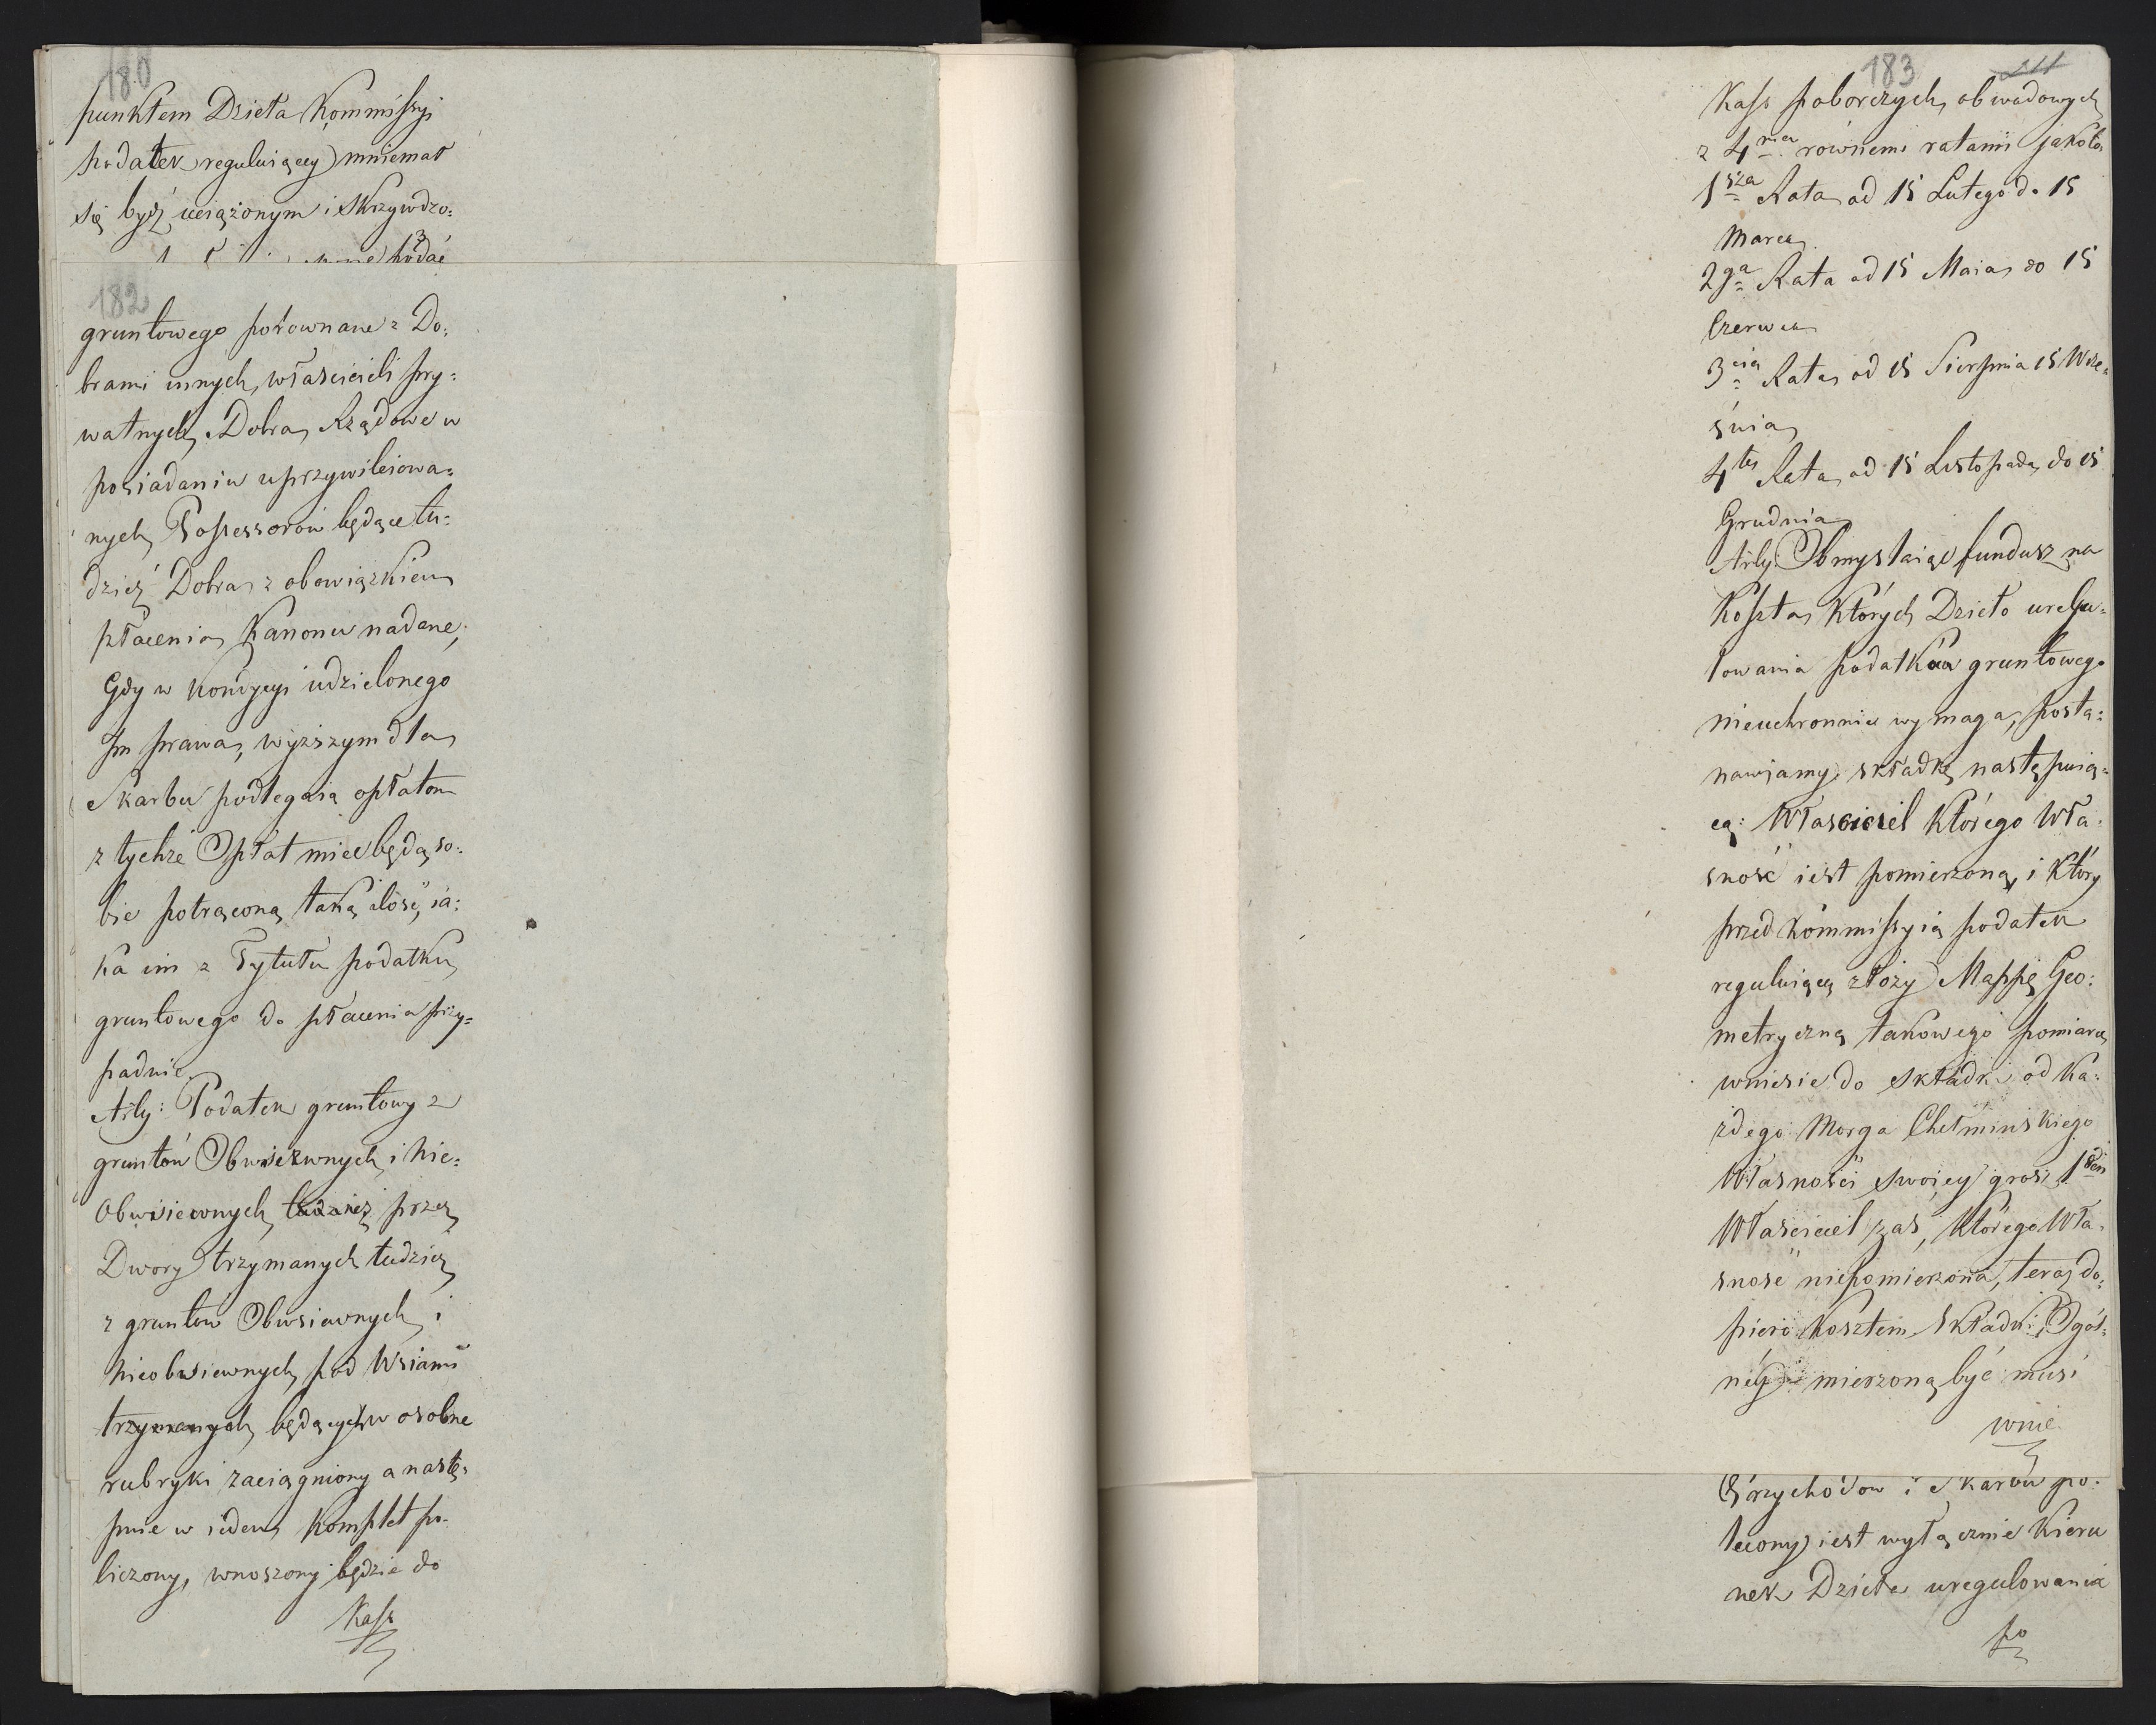 180
punktem Dzieła Kommissyi
podatek reguluiący) mniemał
się bydź uciążonym i skrzywdzo:
podać
182
gruntowego porownane z Do:
brami innych właścicieli pry:
watnych, Dobra Rządowe w
posiadaniu uprzywileiowa:
nych Possessorow będące tu:
dzież Dobra z obowiązkiem
płacenia Kanonu nadane,
Gdy w kondycyi udzielonego
im prawa, wyższym dla
Skarbu podlegaią opłatom
z tychże Opłat mieć będą so:
bie potrąconą taką ilość, ia:
ka im z Tytułu podatku
gruntowego do płacenia przy:
padnie.
Arly: Podatek gruntowy z
gruntów Obwsiewnych i nie:
Obwsiewnych tudzież przez
Dwory trzymanych tudzież
z gruntów Obwsiewnych i
nieobwsiewnych pod Wsiami
trzymanych będących w osobne
rubryki zaciągniony a nastę:
pnie w ieden komplet po:
liczony, wnoszony będzie do
Kass
183 211
Kass poborczych, obwodowych
z 4ma równemi ratami jakoto
1sza Rata od 15 Lutego do 15
Marca.
2ga Rata od 15 Maia do 15
Czerwca
3cia Rata od 15 Sierpnia 15 Wrze:
śnia
4ta Rata od 15 Listopada do 15
Grudnia
Arly: Obmyslaiąc fundusz na
Koszta których Dzieło uregu:
lowania podatku gruntowego
nieuchronnie wymaga, posta:
nawiamy składkę następuią:
cą: Właściciel którego wła:
sność iest pomierzoną, i który
przed kommissyią podatek
reguluiącą złoży Mappę Geo:
metryczną takowego pomiaru
wniesie do składki od Ka:
żdego Morga Chełminskiego
Własności swoiey grosz 1den
Właściciel zaś, którego Wła:
sność niepomierzona, teraz do:
piero kosztem składki Ogól:
néy mierzoną być musi
wnie
Przychodow i Skarbu po:
lecony iest wyłącznie Kieru
nek Dzieła uregulowania
po